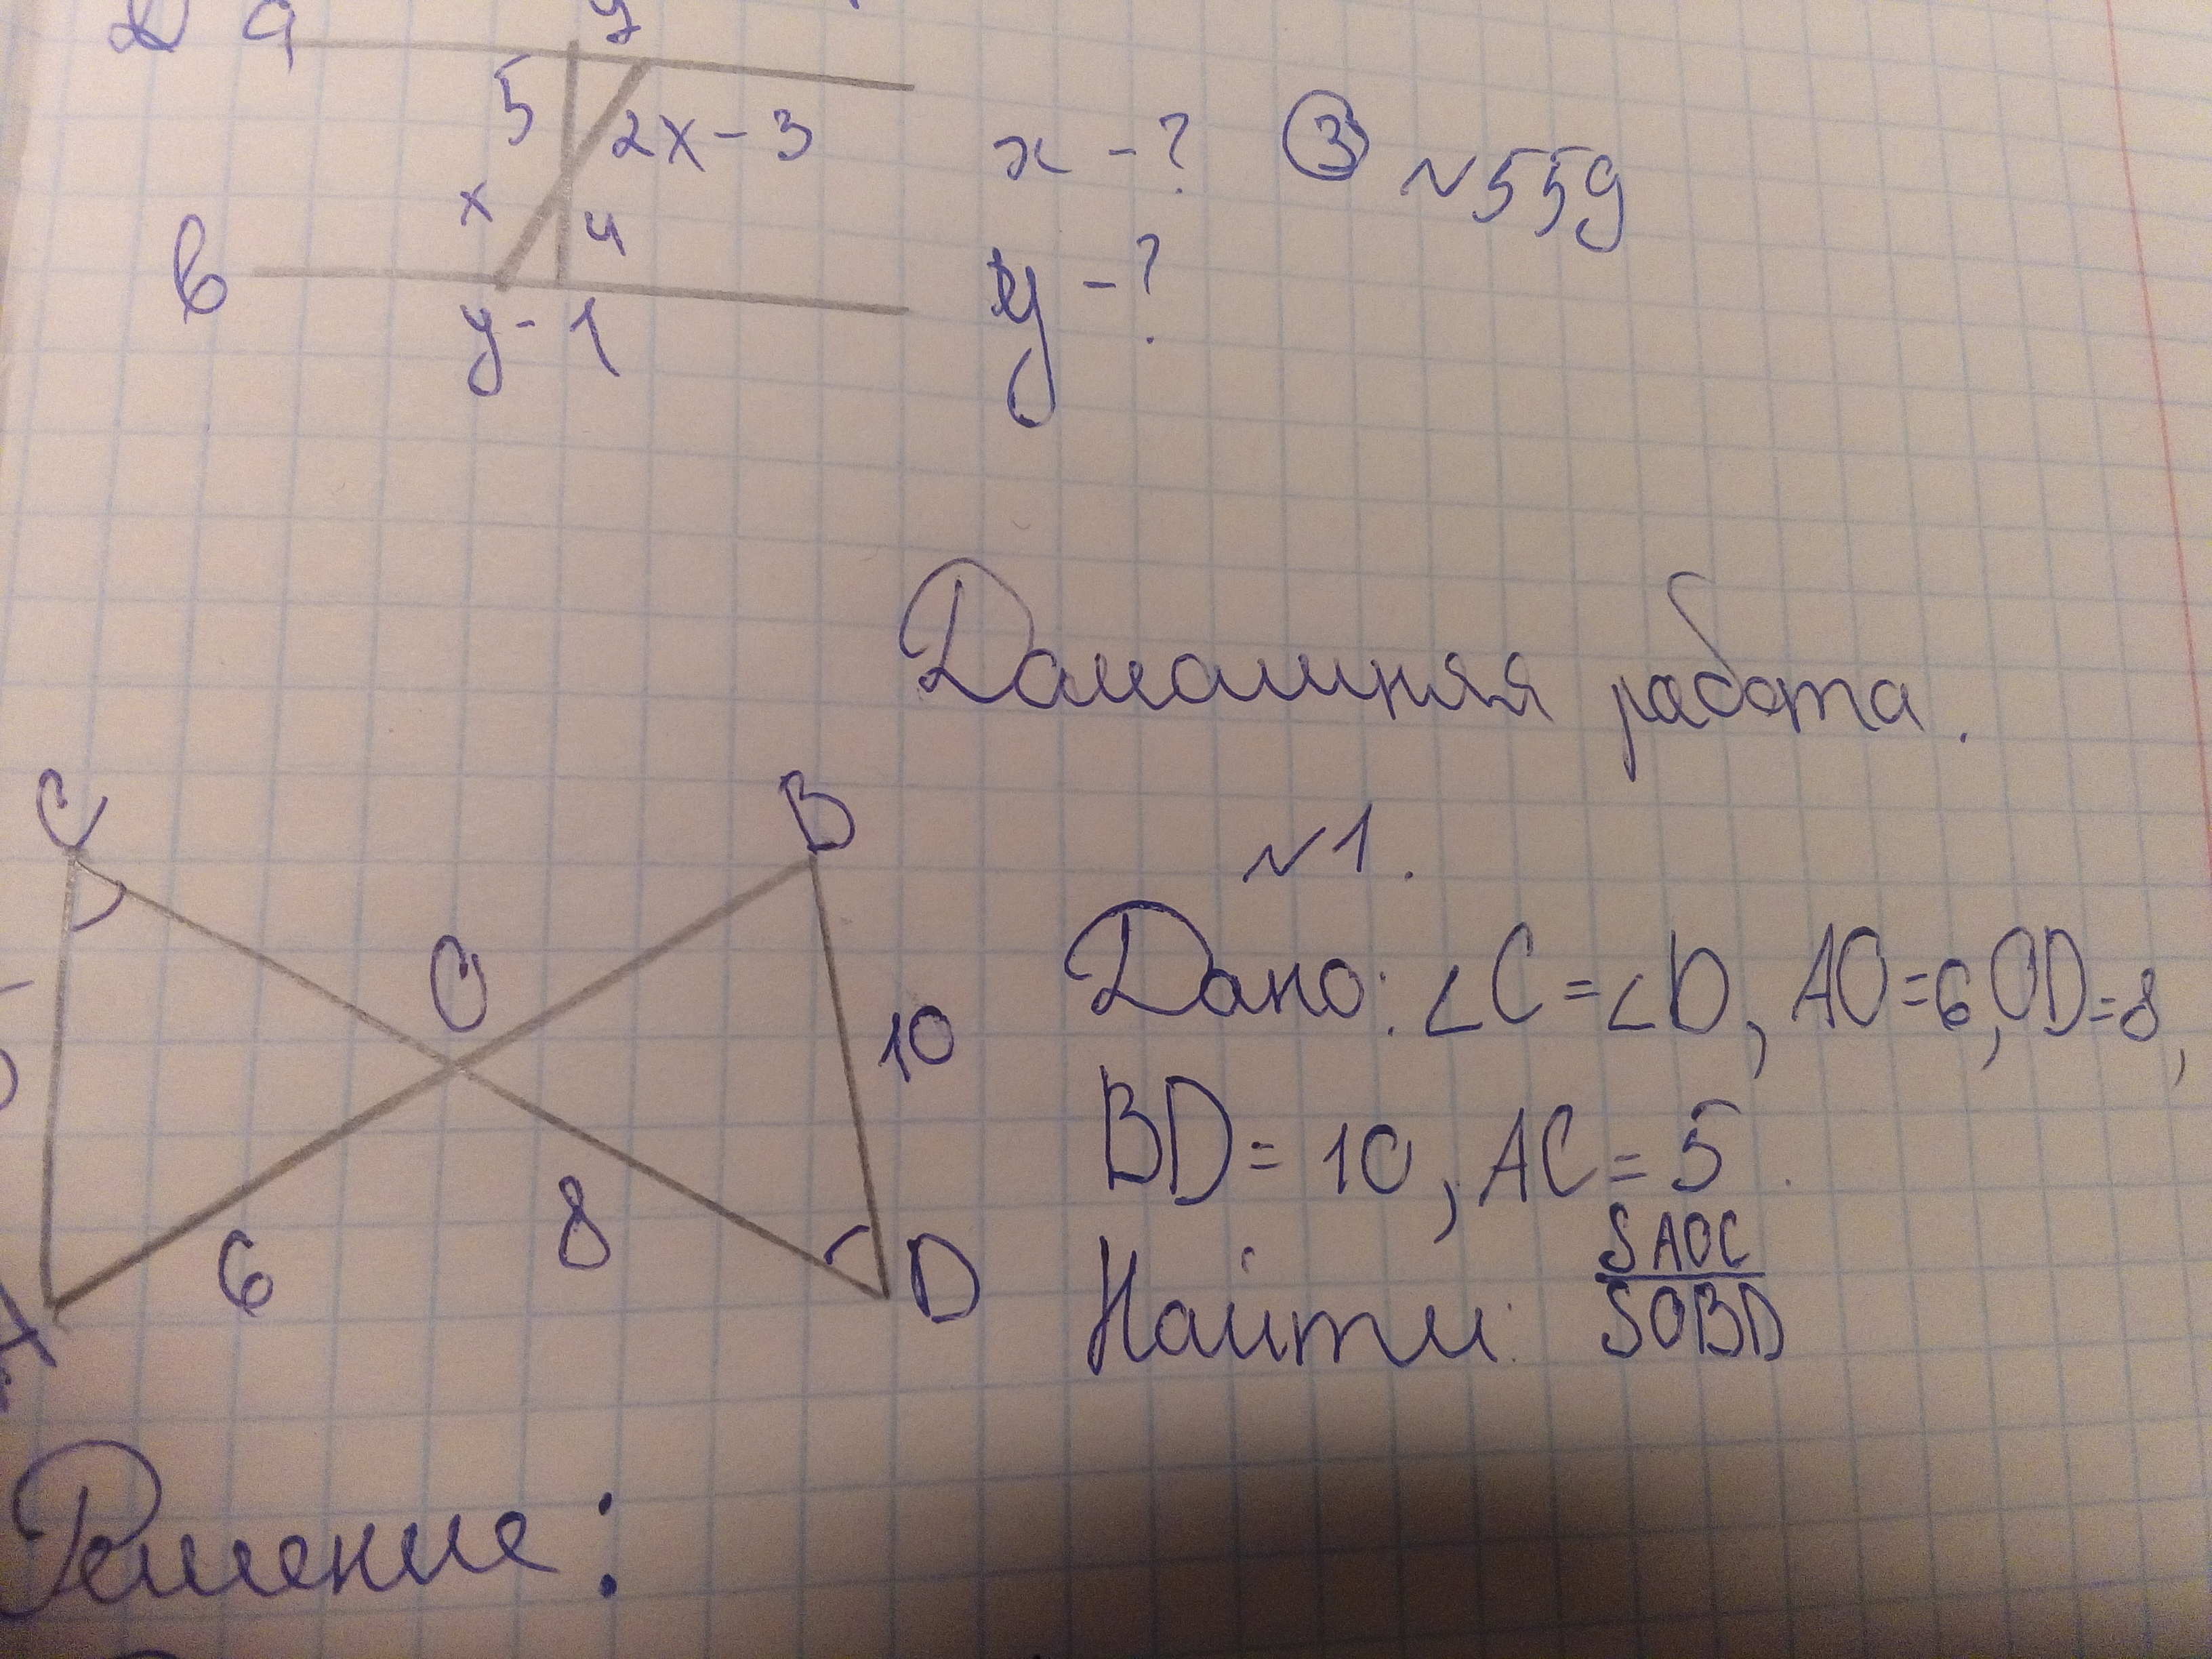 a
5
2x-3
x -?
③ №559
x
4
в
y-1
y -?
Домашняя работа.
C
B
№1.
O
Дано: ∠C=∠D, AO=6, OD=8,
10
BD=10, AC=5.
8
6
D
Найти: SAOC/SOBD
A
Решение: